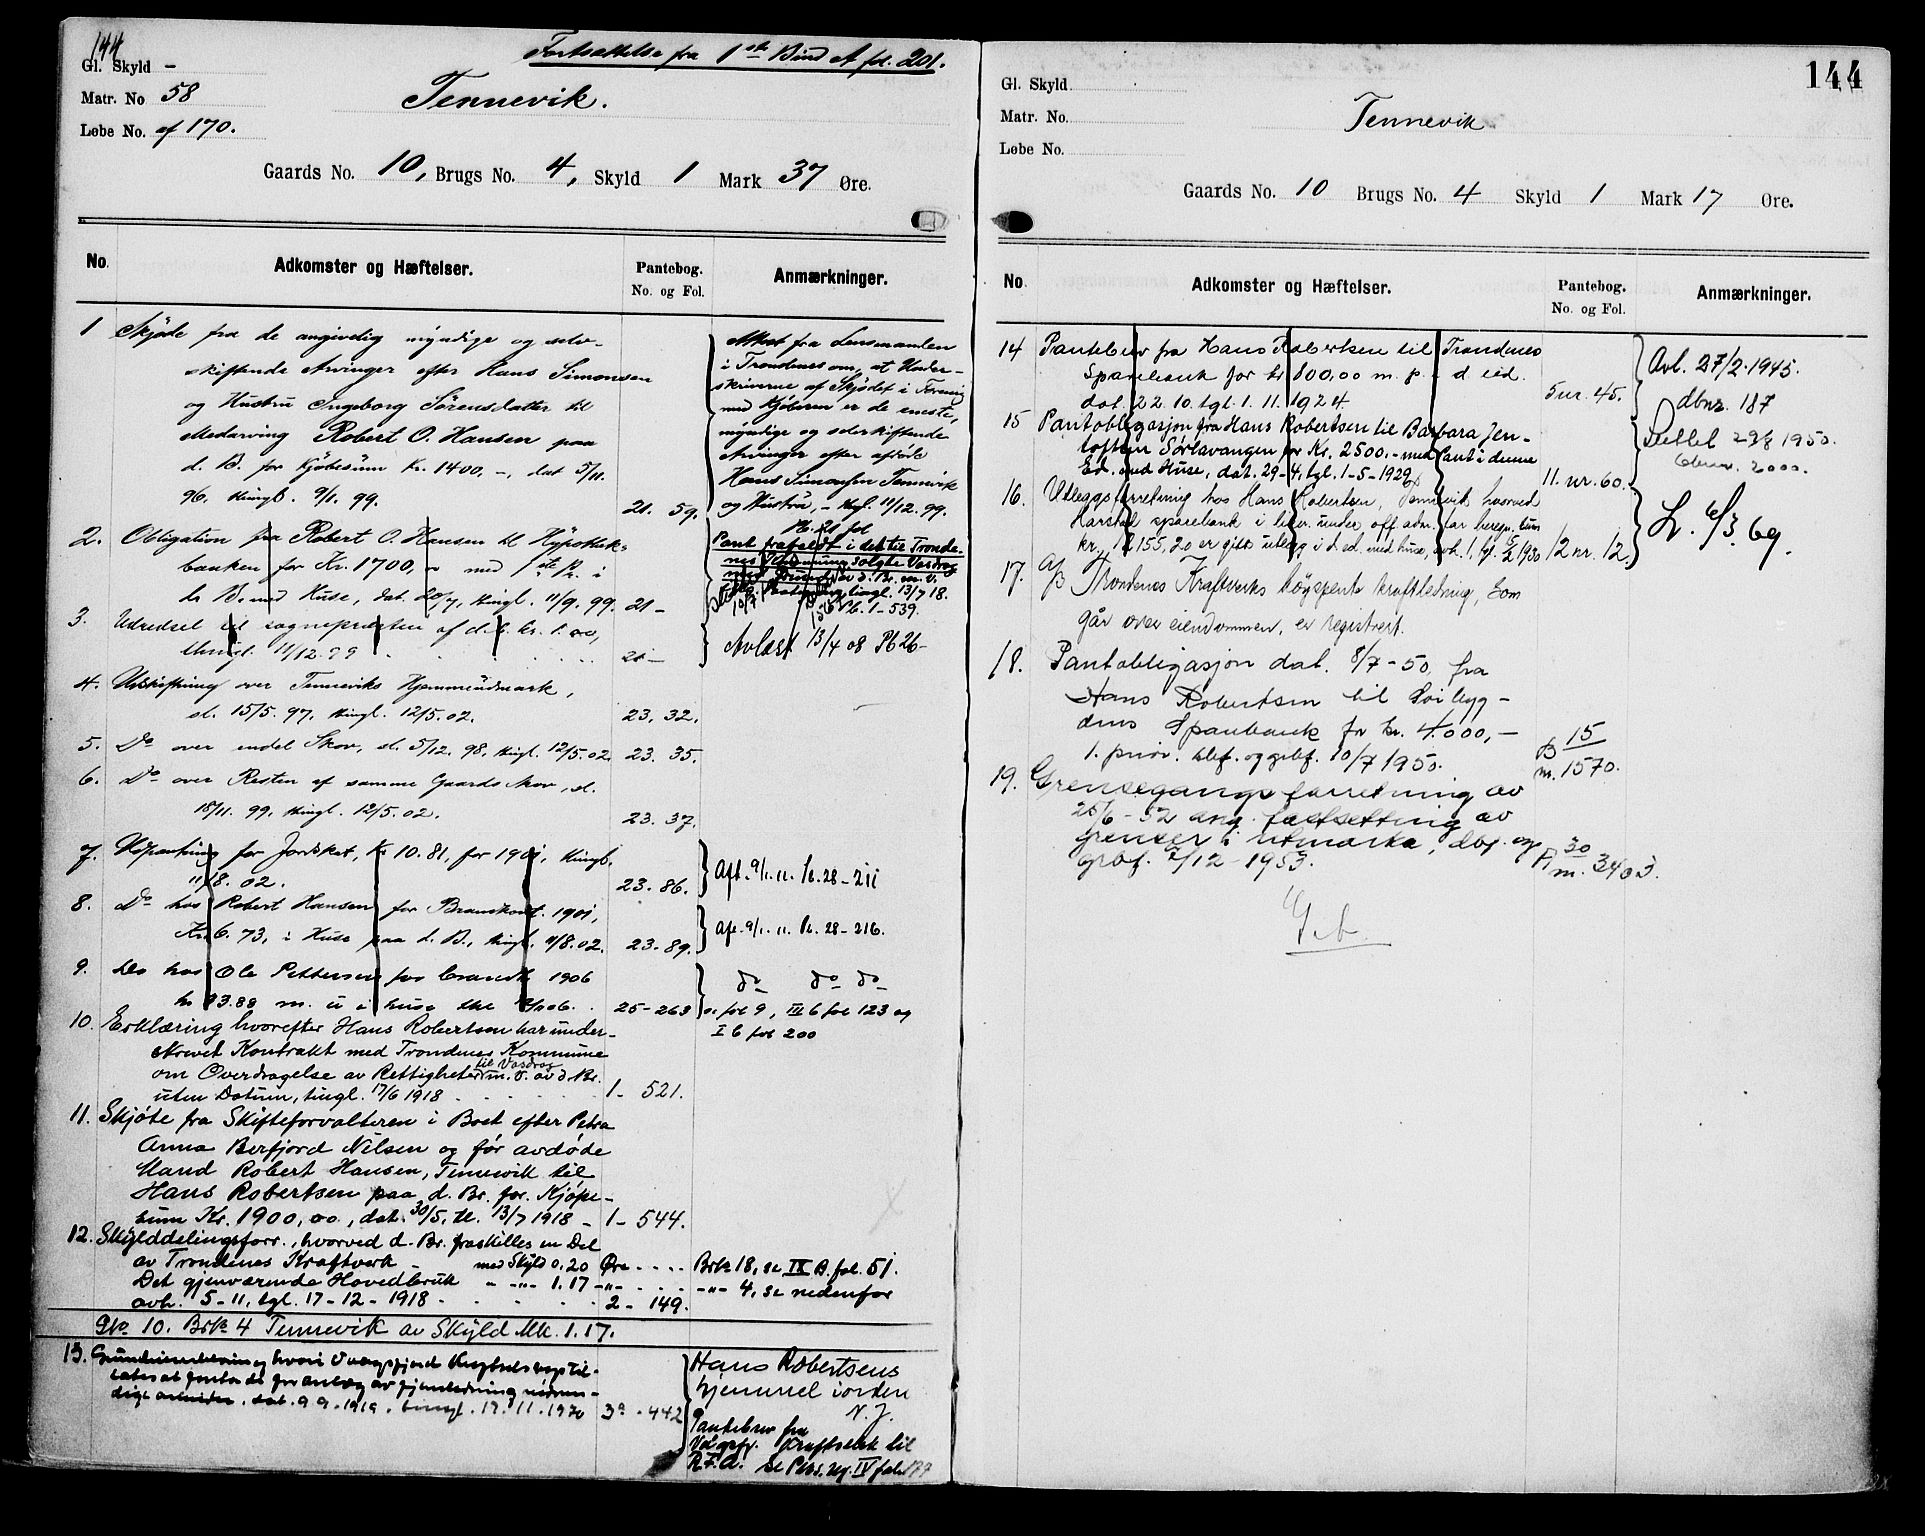 144
Fortsættelse fra 1ste Bind A fol. 201.
Gl. Skyld -
Matr. No 58
Tennevik.
Løbe No. af 170.
Gaards No. 10, Brugs No. 4, Skyld 1 Mark 37 Øre.
No. Adkomster og Hæftelser. Pantebog. No. og Fol. Anmærkninger.
1 Skjøde fra de angivelig myndige og selv-
skiftende Arvinger efter Hans Simonsen
og Hustru Ingeborg Sørensdatter til
Medarving Robert O. Hansen paa
d. B. for Kjøbesum Kr. 1400, -, dat 5/11.
96, thingl. 9/1. 99. 21. 59.
Attest fra Lensmanden
i Trondenes om, at Under-
skriverne af Skjødet i Forening
med Kjøberen er de eneste,
myndige og selvskiftende
Arvinger efter afdøde
Hans Simonsen Tennevik
og Hustru, - thgl. 11/12. 99.
Pb. 21 fol
2. Obligation fra Robert O. Hansen til Hypothek-
banken for Kr. 1700, - med 1ste Pr. i
d. B. med Huse, dat. 20/7, thingl. 11/9. 99. 21 -
Pant frafaldt i det til Tronde-
nes Kommune solgte Vasdrag
tingl. 13/7 18.
Pb. 1 - 539.
3. Udredsel til sognepresten af d. B. kr. 1.00,
thingl. 11/12. 99 21 -
Avlæst 13/4 08 Pb 26 -
4. Udskiftning over Tenneviks Hjemmeudmark,
sl. 15/5. 97, thingl. 12/5. 02. 23. 32.
5. Do over endel Skov, sl. 5/12. 98, thingl. 12/5. 02. 23. 35.
6. Do over Resten af samme Gaards Skov, sl.
18/11. 99, thingl. 12/5. 02. 23. 37.
7. Udpantning for Jordskat, Kr 10.81, for 1901, thingl.
11/8. 02. 23. 86.
Afl. 9/1. 11. Pb. 28 - 211
8. Do hos Robert Hansen for Brandkont. 1901,
Kr. 6. 73, i Huse paa d. B., thingl. 11/8. 02. 23. 89.
Afl. 9/1. 11. Pb. 28 - 216.
9. Do hos Ole Pettersen for brandk 1906
kr 13.88 m. u i huse 25 - 263
do do do
se fol 9, III b fol 123 og
I b fol 200
10. Erklæring hvorefter Hans Robertsen har under-
skrevet Kontrakt med Trondenes Kommune
om Overdragelse av Rettigheter til Vasdrag m. v. av d. Br.
uten Datum, tingl. 17/6 1918 1 - 521.
11. Skjøte fra Skifteforvalteren i Boet efter Petra
Anna Berfjord Nilsen og før avdøde
Mand Robert Hansen, Tennevik til
Hans Robertsen paa d. Br. for Kjøpe-
sum Kr. 1900,00, dat. 30/5, tl. 13/7 1918 - 1 - 544.
12. Skylddelingsforr., hvorved d. Br. fraskilles en Del
av Trondenes Kraftverk - med Skyld 0.20 Øre . . . . Brk 18, se IX B. fol. 51.
Det gjenværende Hovedbruk " -"- 1.17 -"- . . . . -"- 4, se nedenfor
avh. 5 - 11, tgl. 17 - 12 - 1918 2 - 149.
Gk 10. Brk 4 Tennevik av Skyld Mk. 1.17.
13. hvori Vaagsfjord
for anlæg av fjernledning
dat. 9 9. 1919. tingl. 17. 11. 1920 3a - 442
Hans Robertsens
hjemmel i orden
N. J.
Pantebrev fra
Vaagsfj. Kraftselsk til
R.F.A. se Pers. reg. IV fol. 177
144
Gl. Skyld
Matr. No.
Tennevik
Løbe No.
Gaards No. 10 Brugs No. 4 Skyld 1 Mark 17 Øre.
No. Adkomster og Hæftelser. Pantebog. No. og Fol. Anmærkninger.
14 Pantebrev fra Hans Robertsen til Trondenes
Sparebank for kr 800,00 m. p. i d eid.
dat. 22. 10. tgl. 1. 11. 1924. 5 nr. 45.
Avl. 27/2. 1945.
dbnr. 187
15 Pantobligasjon fra Hans Robertsen til Barbara Jen-
toftsen Sørlavangen for Kr. 2500.- med Pant i denne
Ed. med Huse, dat. 29-4, tgl. 1-5-1929. 11. nr. 60.
Slettet 29/8 1950.
16. Utleggsforretning hos Hans Robertsen, Tennevik, hvorved
Harstad sparebank i likv. under off. adm. for beregn. sum
kr. 12 155,20 er gitt utlegg i d. ed. med huse, 12 nr. 12.
Sl. 6/3. 69.
17. Trondenes Kraftverks høyspente kraftledning, som
går over eiendommen, er registrert.
18. Pantobligasjon dat. 8/7 - 50, fra
Hans Robertsen til Løilegg-
dens Sparebank for kr. 4.000,-
1. prior. dbf. og grbf. 10/7 1950. B 15
nr. 1570.
19. Grensegangsforretning av
25/6 - 52 ang. fastsetting av
grenser i utmarka, dbf. og
grbf. 7/12 - 1953. 30
nr. 3403.